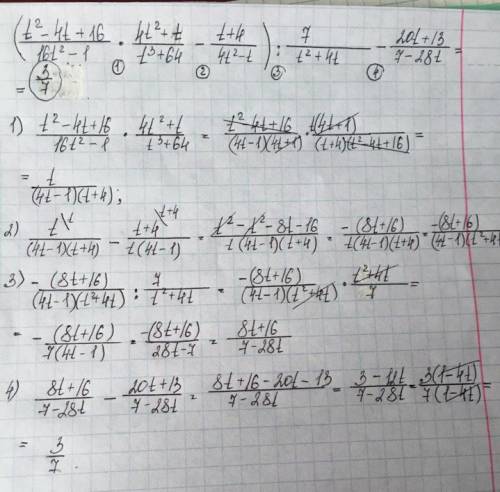 ((t²-4t+16)/(16t²-1) · (4t²+t)/(t³+64) - (t+4)/(4t²-t)) : 7/(t²+4t) - (20t+13)/(7-28t) =
① ② ③ ④
= 3/7
1) (t²-4t+16)/(16t²-1) · (4t²+t)/(t³+64) = (t²-4t+16)/((4t-1)(4t+1)) · t(4t+1)/((t+4)(t²-4t+16)) =
= t/((4t-1)(t+4));
2) t\t/((4t-1)(t+4)) - t+4\t+4/(t(4t-1)) = (t²-t²-8t-16)/(t(4t-1)(t+4)) = -(8t+16)/(t(4t-1)(t+4)) = -(8t+16)/((4t-1)(t²+4t))
3) -(8t+16)/((4t-1)(t²+4t)) : 7/(t²+4t) = -(8t+16)/((4t-1)(t²+4t)) · (t²+4t)/7 =
= -(8t+16)/(7(4t-1)) = -(8t+16)/(28t-7) = (8t+16)/(7-28t)
4) (8t+16)/(7-28t) - (20t+13)/(7-28t) = (8t+16-20t-13)/(7-28t) = (3-12t)/(7-28t) = 3(1-4t)/(7(1-4t)) =
= 3/7.